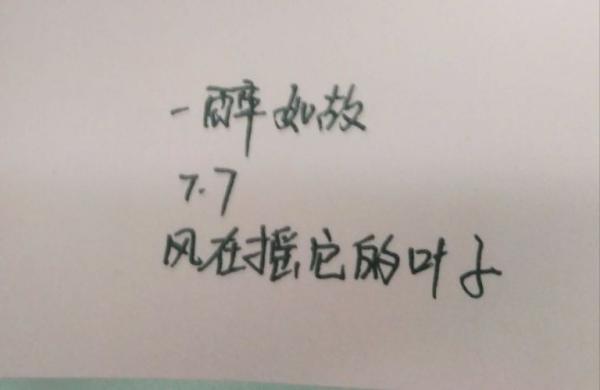 一醉如故
7.7
风在摇它的叶子